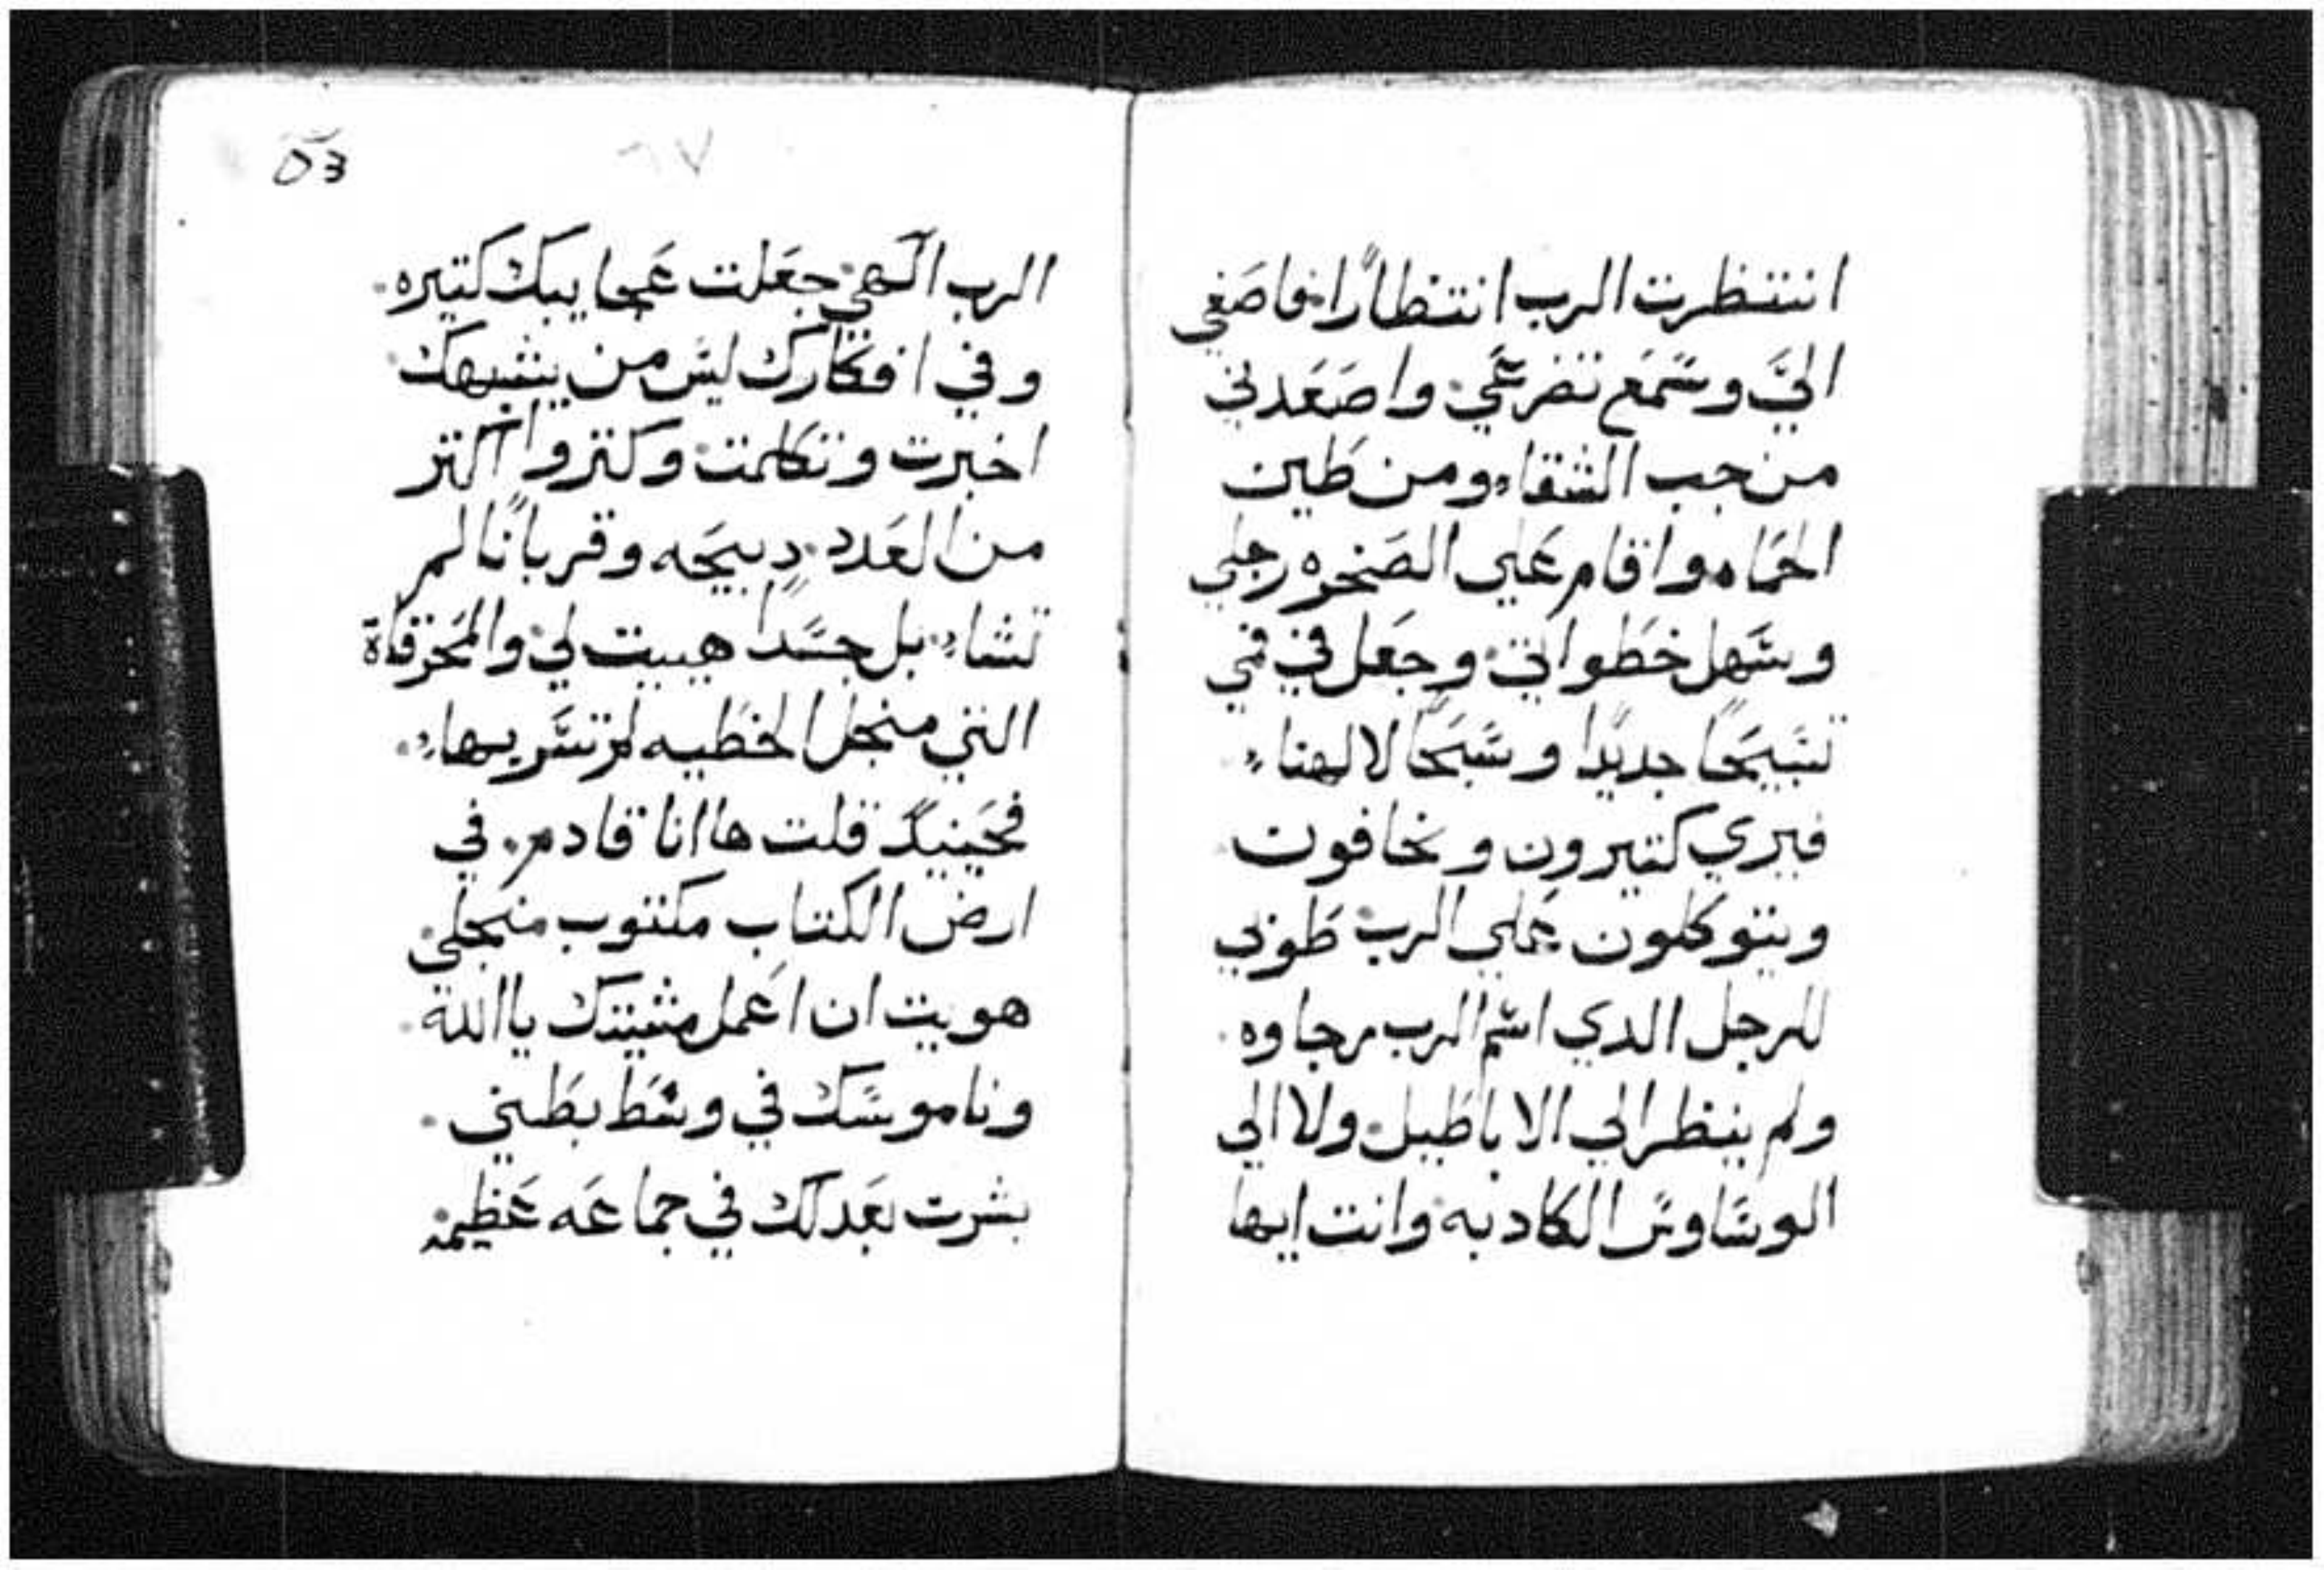 انتظرت الرب انتظارًا فاصَغي
اليَّ وسَمَع تضرعَي واصَعَدني
من جب الشقاء ومن طَين
الحَماه واقام عَلي الصَخره رجلي
وسَهل خطَواتي وجعَل في فمي
تسَبيحًا جديدًا وسَبحًا لالهنا
فيري كتيرون ويخافون
ويتوكلون عَلي الرب طَوبي
للرجل الدي اسَم الرب رجاوه
ولم ينظر الي الاباطَيل ولا الي
الوسَاوسَ الكادبه وانت ايها
٥3
٦٧
الرب الهي جعَلت عَجايبك كتيره
وفي افكارك ليسَ من يشبهك
اخبرت وتكلمت وكتروا اكتر
من العَدد دبيحَه وقربانًا لم
تشاء بل جسَدًا هييت لي والمحَرقاة
التي منجل الخطَيه لم تسَر بها
فحَينيد قلت هاانا قادم في
ارض الكتاب مكتوب منجلي
هويت ان اعَمل مشيتك ياالله
وناموسَك في وسَط بطَني
بشرت بعَدلك في جماعَه عَظيمه